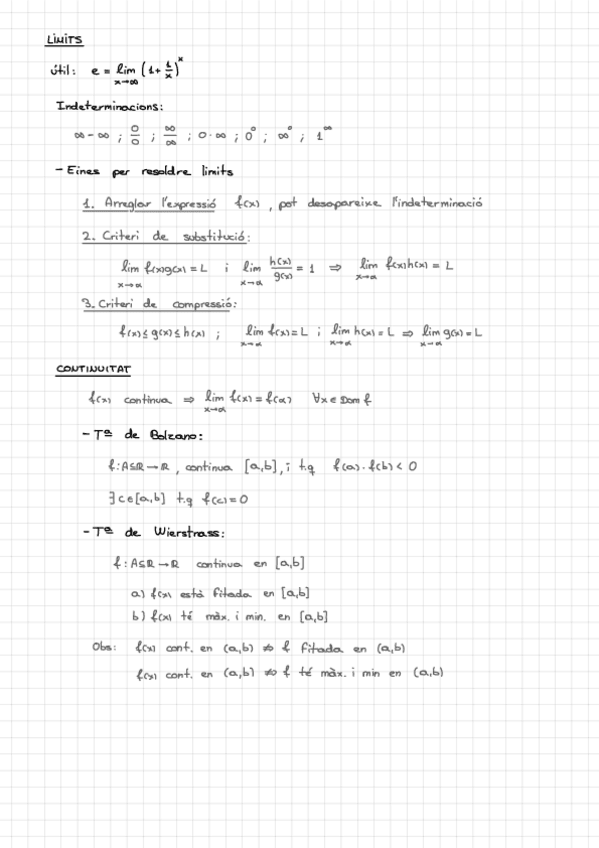 LÍMITS
útil: e = lim x→∞ (1 + 1/x)^x
Indeterminacions:
∞ - ∞ ; 0/0 ; ∞/∞ ; 0·∞ ; 0^0 ; ∞^0 ; 1^∞
- Eines per resoldre límits
1. Arreglar l'expressió f(x), pot desapareixe l'indeterminació
2. Criteri de substitució:
lim x→a f(x)g(x) = L i lim x→a h(x)/g(x) = 1 ⇒ lim x→a f(x)h(x) = L
3. Criteri de compressió:
f(x) ≤ g(x) ≤ h(x) ; lim x→a f(x) = L i lim x→a h(x) = L ⇒ lim x→a g(x) = L
CONTINUITAT
f(x) contínua ⇒ lim x→a f(x) = f(a) ∀x ∈ Dom f
- Tª de Bolzano:
f: A⊆R → R, contínua [a,b], i t.q f(a)·f(b) < 0
∃ c ∈ [a,b] t.q f(c) = 0
- Tª de Wierstrass:
f: A⊆R → R contínua en [a,b]
a) f(x) està fitada en [a,b]
b) f(x) té màx. i min. en [a,b]
Obs: f(x) cont. en (a,b) ⇏ f fitada en (a,b)
f(x) cont. en (a,b) ⇏ f té màx. i min en (a,b)